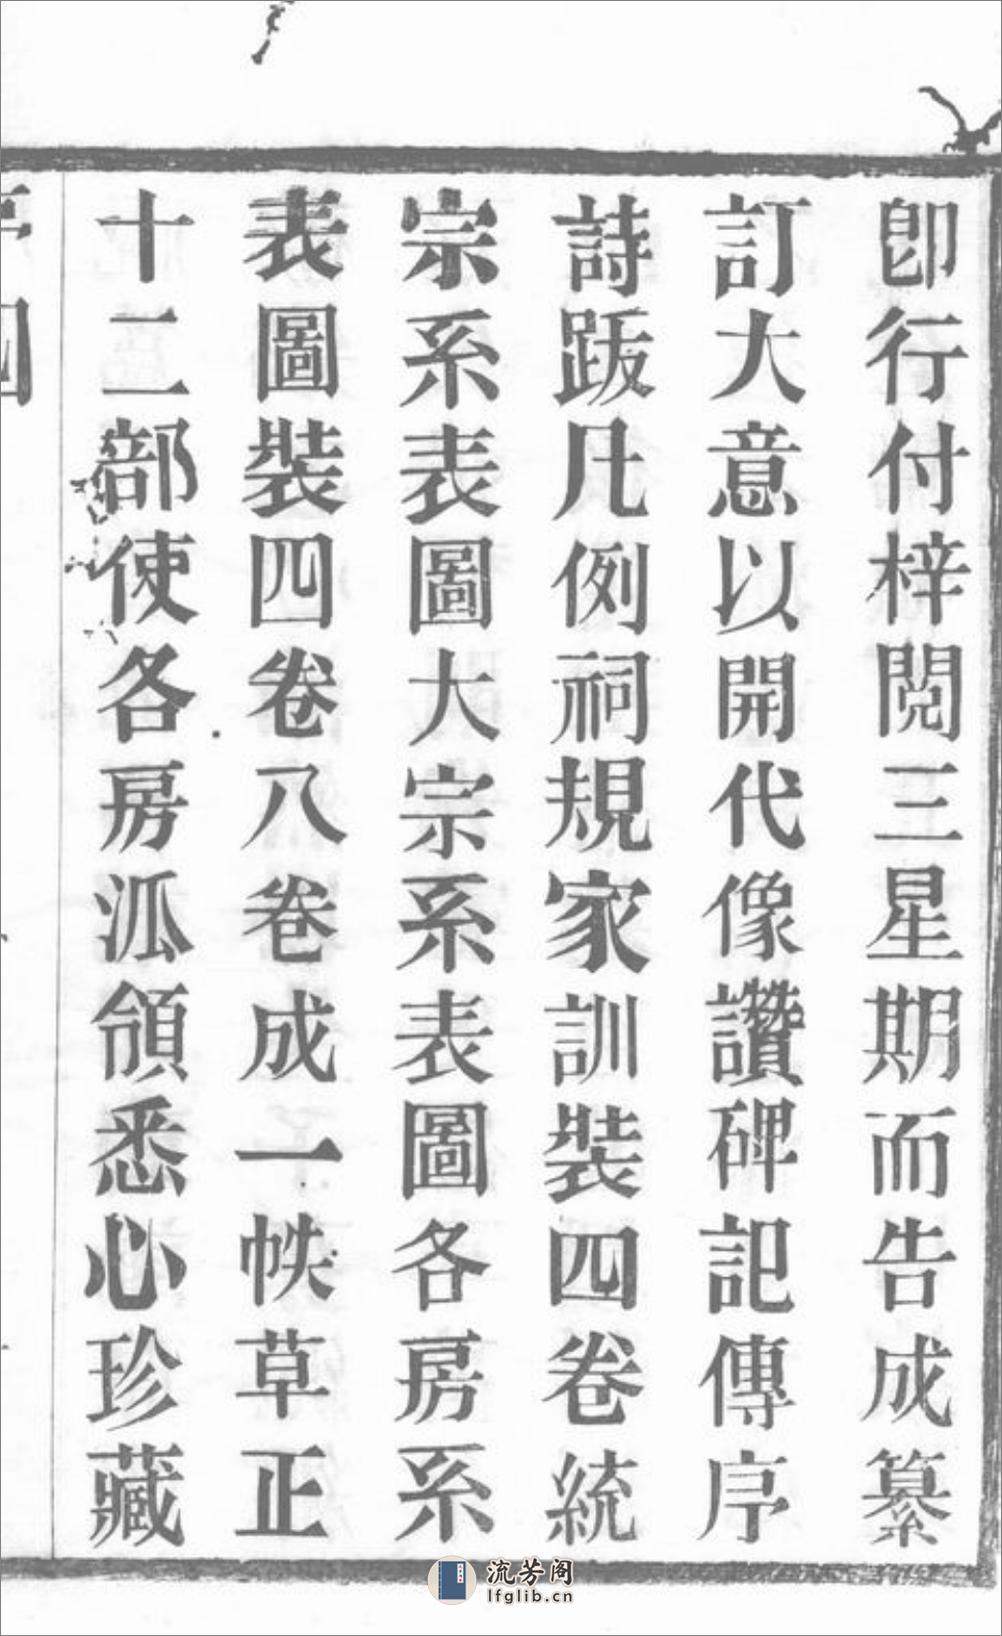 卽行付梓閱三星期而告成纂
訂大意以開代像讚碑記傳序
詩跋凡例祠規家訓裝四卷統
宗系表圖大宗系表圖各房系
表圖裝四卷八卷成一帙草正
十二部使各房泒領悉心珍藏
流芳阁
lfglib.cn